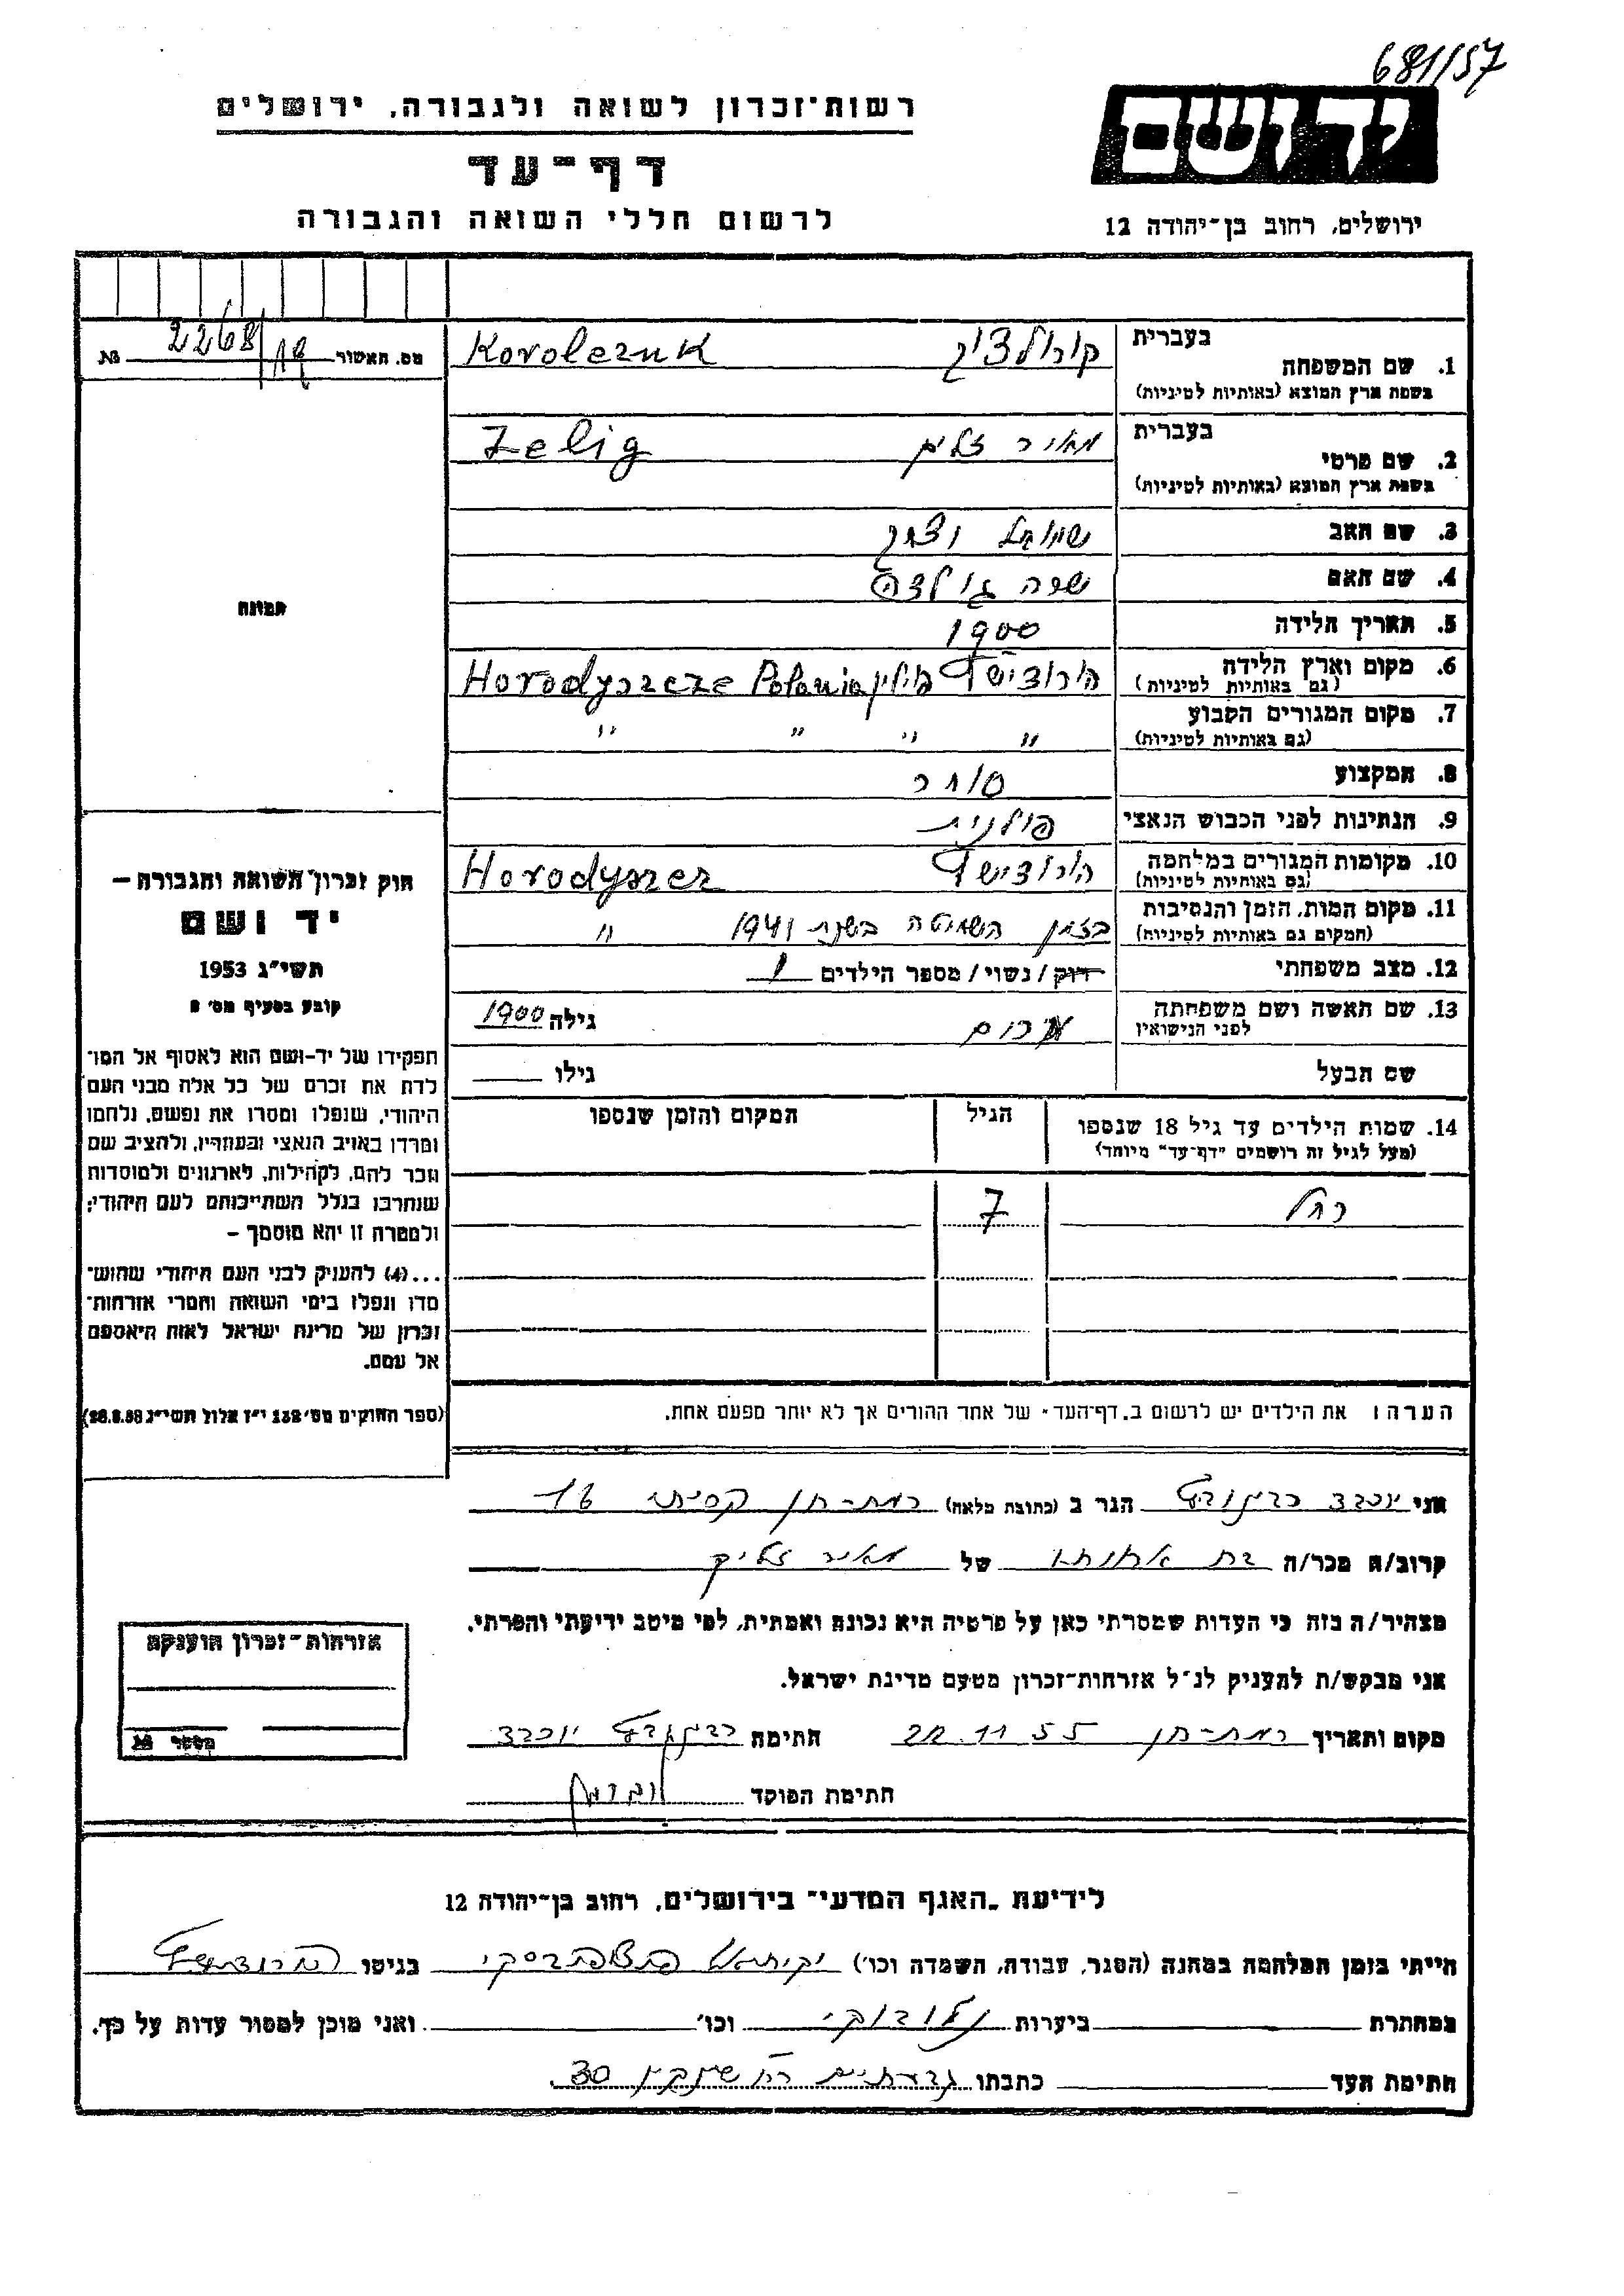 681/57
יד ושם
ירושלים, רחוב בן־יהודה 12
רשות־זכרון לשואה ולגבורה, ירושלים
דף־עד
לרשום חללי השואה והגבורה
מס. האשור 2268/19 №
בעברית
1. שם המשפחה
בשפת ארץ המוצא (באותיות לטיניות)
קורולצוק Korolczuk
בעברית
2. שם פרטי
בשפת ארץ המוצא (באותיות לטיניות)
מאיר זליג Zelig
3. שם האב שמואל
4. שם האם שרה
5. תאריך הלידה 1900
6. מקום וארץ הלידה הורודישץ פולין Horodyszcze Polania
(גם באותיות לטיניות)
7. מקום המגורים הקבוע " " " "
(גם באותיות לטיניות)
8. המקצוע סוחר
9. הנתינות לפני הכבוש הנאצי פולנית
10. מקומות המגורים במלחמה הורודישץ Horodyszcz
(גם באותיות לטיניות)
11. מקום המות, הזמן והנסיבות בזמן השחיטה בשנת 1941 "
(המקום גם באותיות לטיניות)
12. מצב משפחתי רווק / נשוי / מספר הילדים 1
13. שם האשה ושם משפחתה גילה 1900
לפני הנישואין
שם הבעל גילו
14. שמות הילדים עד גיל 18 שנספו
(מעל לגיל זה רושמים "דף־עד" מיוחד)
הגיל
המקום והזמן שנספו
רחל 7
הערה: את הילדים יש לרשום ב„דף־העד" של אחד ההורים אך לא יותר מפעם אחת.
תמונה
חוק זכרון השואה והגבורה –
יד ושם
תשי״ג 1953
קובע בסעיף מס׳ 2
תפקידו של יד־ושם הוא לאסוף אל המו־
לדת את זכרם של כל אלה מבני העם
היהודי, שנפלו ומסרו את נפשם, נלחמו
ומרדו באויב הנאצי ובעוזריו, ולהציב שם
וזכר להם, לקהילות, לארגונים ולמוסדות
שנחרבו בגלל השתייכותם לעם היהודי;
ולמטרה זו יהא מוסמך –
...(4) להעניק לבני העם היהודי שהוש־
מדו ונפלו בימי השואה והמרי אזרחות־
זכרון של מדינת ישראל לאות היאספם
אל עמם.
(ספר החוקים מס׳ 132 י״ז אלול תשי״ג 28.8.53)
אני יוכבד הגר ב (כתובת מלאה) רמת־גן 16
קרוב/ה מכר/ה בת אחותו של מאיר זליק
מצהיר/ה בזה כי העדות שמסרתי כאן על פרטיה היא נכונה ואמתית, לפי מיטב ידיעתי והכרתי.
אני מבקש/ת להעניק לנ״ל אזרחות־זכרון מטעם מדינת ישראל.
מקום ותאריך רמת־גן 22.11.55 חתימה יוכבד
חתימת הפוקד
אזרחות־זכרון הוענקה
מספר №
לידיעת „האגף המדעי" בירושלים, רחוב בן־יהודה 12
הייתי בזמן המלחמה במחנה (הסגר, עבודה, השמדה וכו׳) בגיטו הורודישץ
במחתרת ביערות וכו׳ ואני מוכן למסור עדות על כך.
חתימת העד כתבתו גבעתיים 30